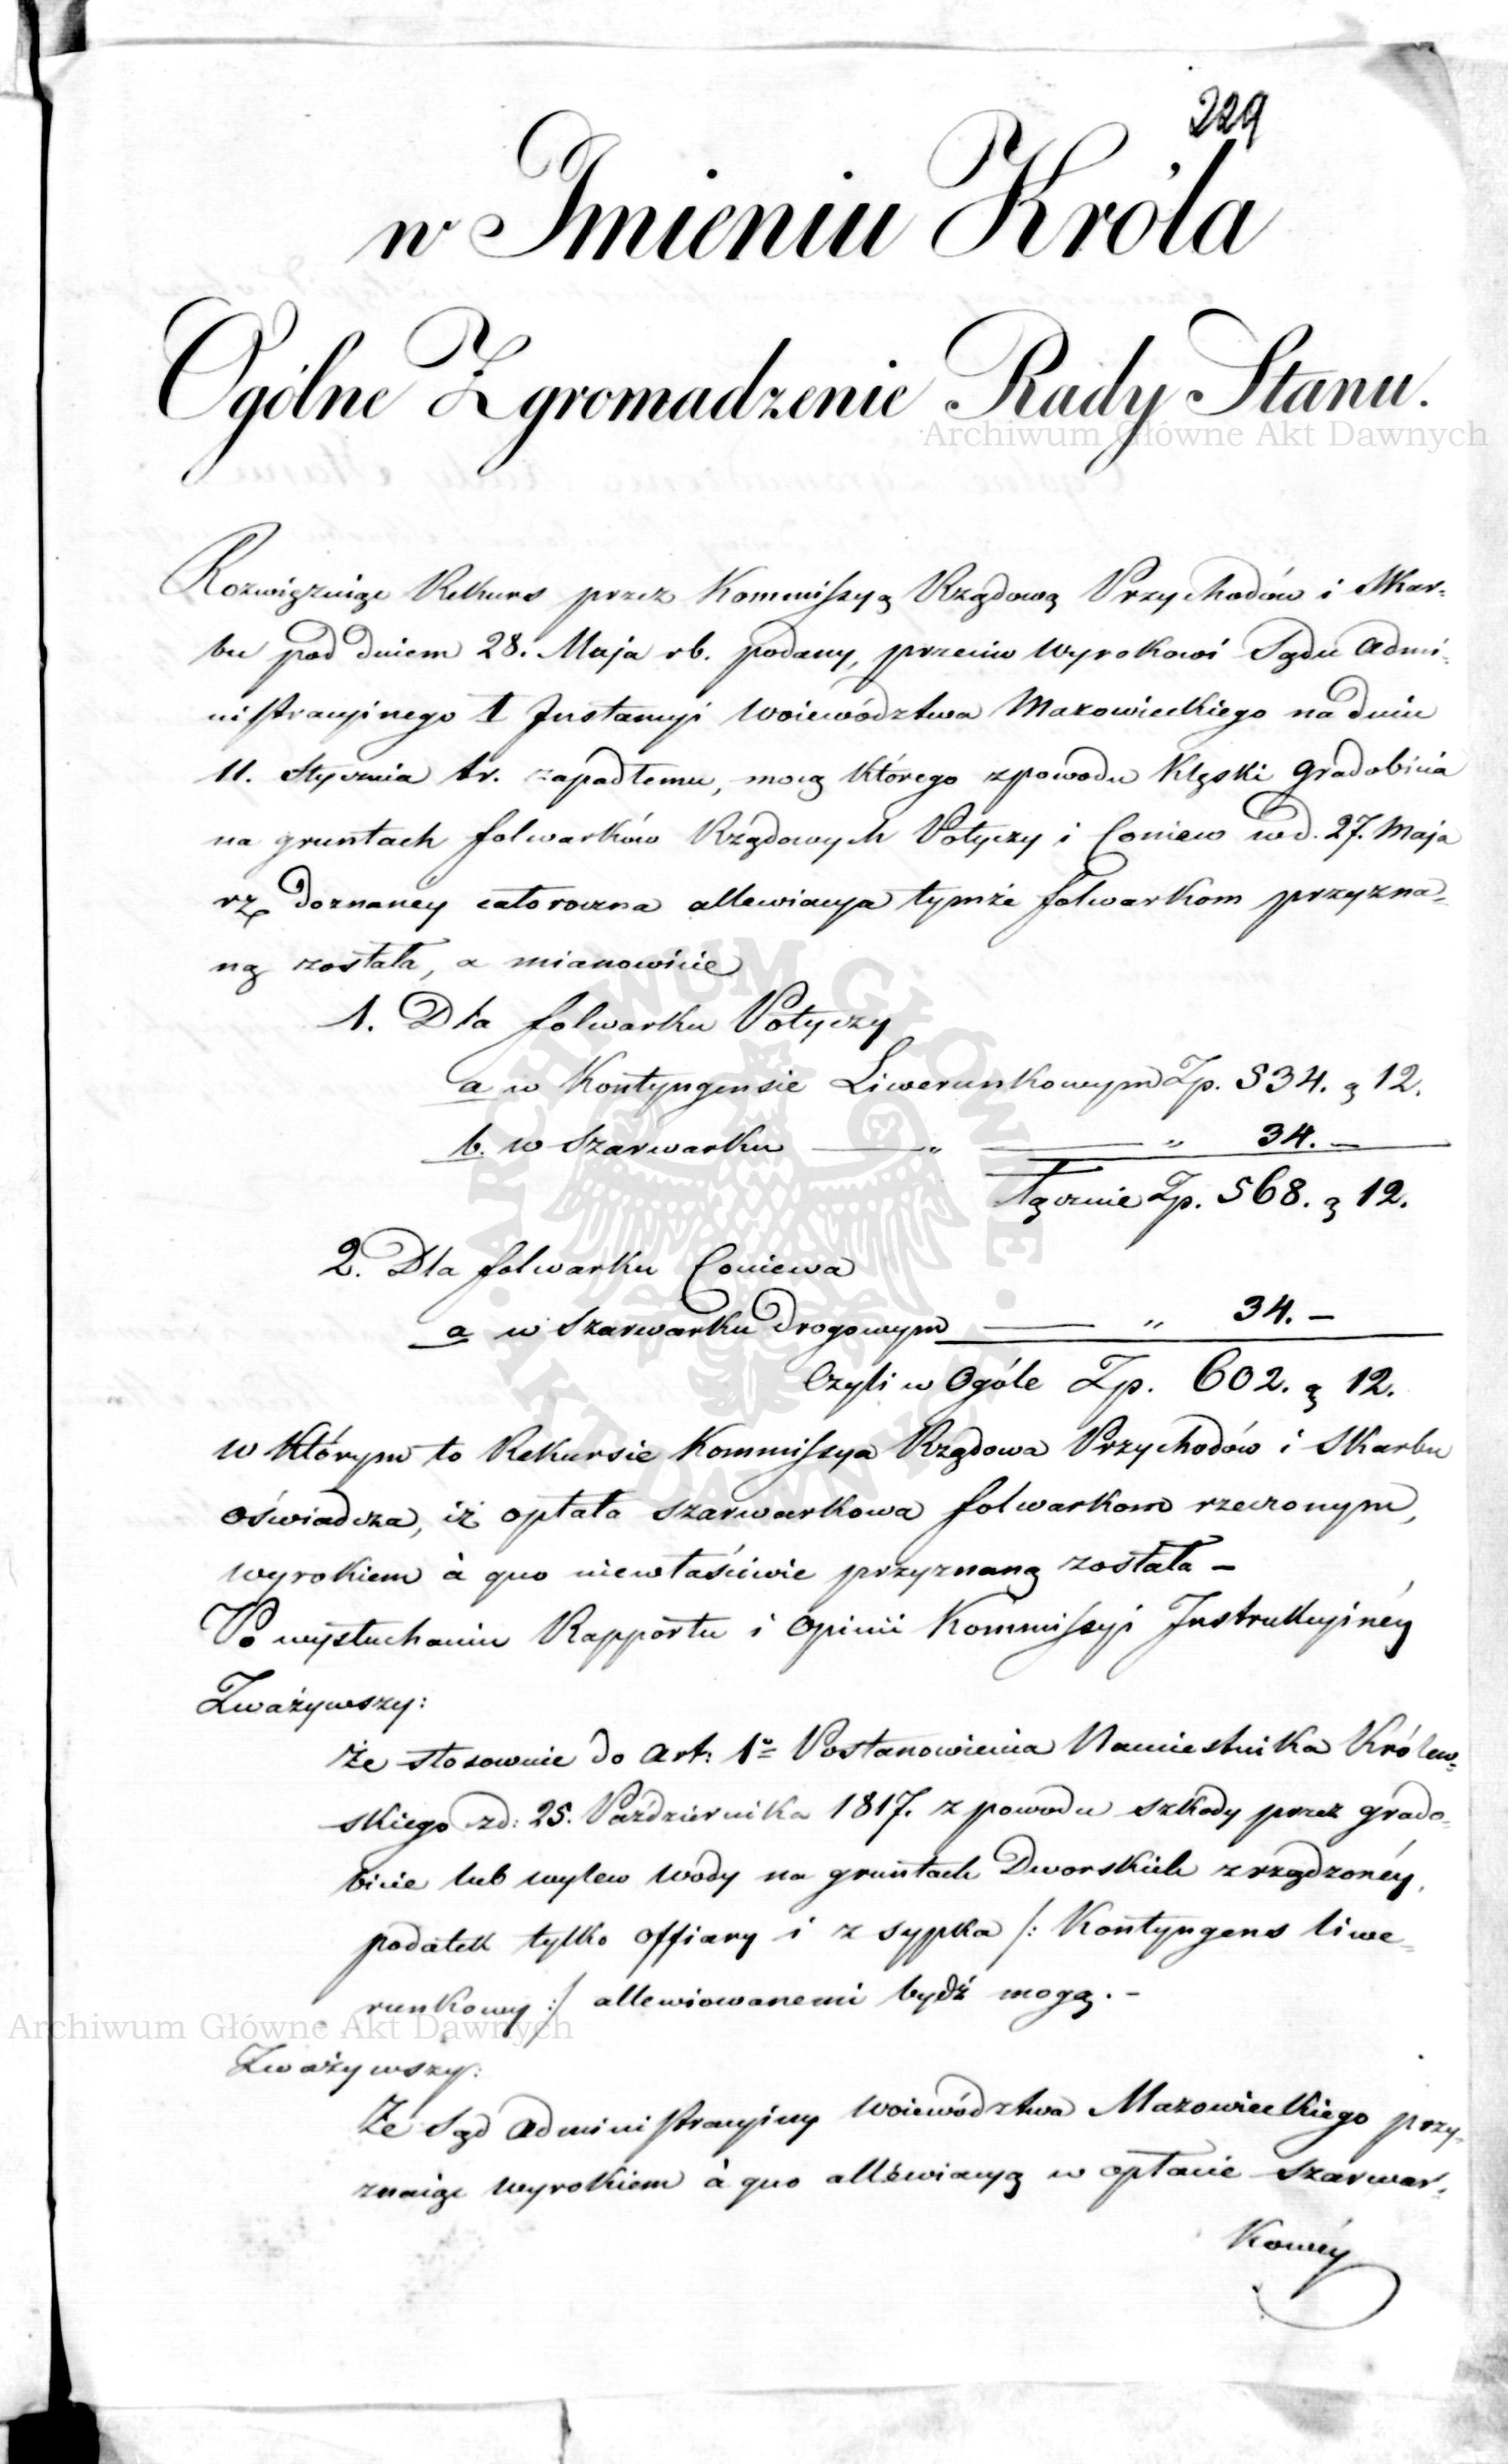 229
w Imieniu Króla
Ogólne Zgromadzenie Rady Stanu.
Archiwum Główne Akt Dawnych
Rozwiązuiąc Rekurs przez Kommissyą Rządową Przychodów i Skar-
bu pod dniem 28. Maja rb. podany, przeciw Wyrokowi Sądu Admi-
nistracyinego I Instancyi Woiewództwa Mazowieckiego na dniu
11. Stycznia tr. zapadłemu, mocą którego z powodu klęski gradobicia
na gruntach folwarków Rządowych Potyczy i Coniew w d. 27. Maja
rz doznanéy całoroczna allewiacya tymże folwarkom przyzna-
ną została, a mianowicie
1. Dla folwarku Potyczy
a w Kontyngensie Liwerunkowym Zp. 534. g 12.
b. w Szarwarku — „ — „ 34. —
Łącznie Zp. 568. g 12.
2. Dla folwarku Coniewa
a w Szarwarku Drogowym — „ 34. —
Czyli w Ogóle Zp. 602. g 12.
w którym to Rekursie Kommissya Rządowa Przychodów i Skarbu
oświadcza, iż opłata szarwarkowa folwarkom rzeczonym,
wyrokiem à quo niewłaściwie przyznaną została —
Po wysłuchaniu Rapportu i Opinii Kommissyi Instrukcyinéy
Zważywszy:
Że stosownie do Art: 1º Postanowienia Namiestnika Królew-
skiego zd: 25. Października 1817. z powodu szkody przez grado-
bicie lub wylew wody na gruntach Dworskich zrządzonéy,
podatek tylko offiary i zsypka /: Kontyngens liwe-
runkowy :/ allewiowanemi bydź mogą. —
Archiwum Główne Akt Dawnych
Zważywszy:
Że Sąd Administracyiny Woiewództwa Mazowieckiego przy-
znaiąc wyrokiem à quo allewiacyą w opłacie szarwar-
kowéy
ARCHIWUM GŁÓWNE · AKT DAWNYCH ·